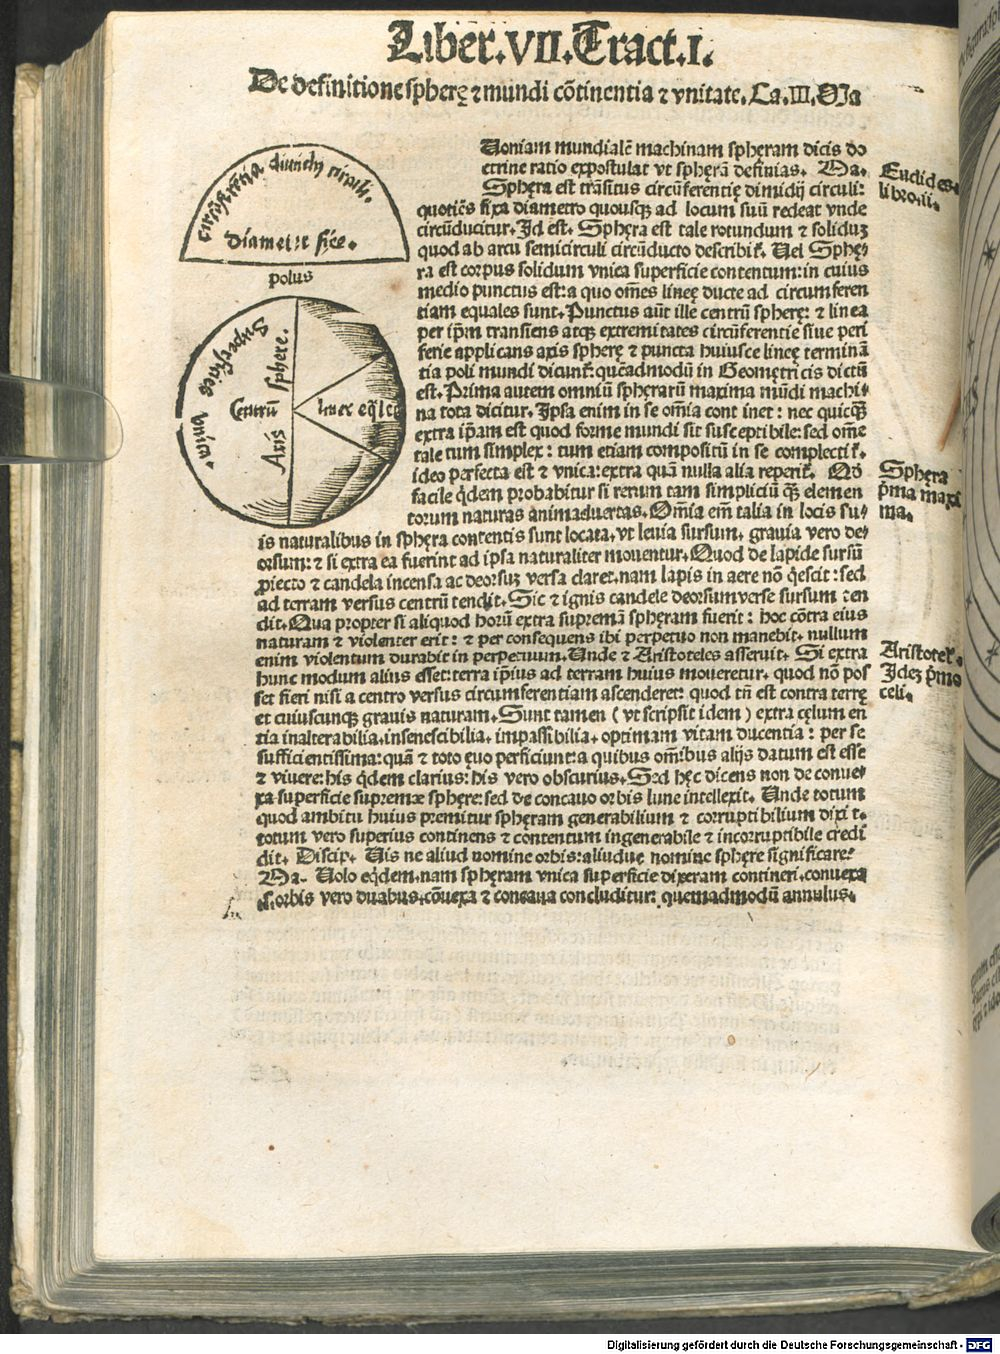 Liber.VII.Tract.I.
De definitione spherę ⁊ mundi cõtinentia ⁊ vnitate. Ca.III. Ma
Uoniam mundialẽ machinam sphęram dicis do
ctrine ratio expostulat vt sphęrã definias. Ma.
Sphęra est trãsitus circũferentię dimidij circuli:
quotiẽs fixa diametro quousqꝫ ad locum suũ redeat vnde
circũducitur. Id est. Sphęra est tale rotundum ⁊ soliduꝫ
quod ab arcu semicirculi circũducto describit᷑. Uel Sphę-
ra est corpus solidum vnica superficie contentum: in cuius
medio punctus est: a quo om̃es lineę ducte ad circumferen
tiam equales sunt. Punctus aũt ille centrũ sphęrę: ⁊ linea
per ip̃m transiens atqꝫ extremitates circũferentie siue peri
ferie applicans axis sphęrę ⁊ puncta huiusce lineę terminã
tia poli mundi dicunt᷑: quẽadmodũ in Geometricis dictũ
est. Prima autem omniũ spherarũ maxima mũdi machi-
na tota dicitur. Ipsa enim in se om̃ia continet: nec quicqꝫ̃
extra ip̃am est quod forme mundi sit susceptibile: sed om̃e
tale tum simplex: tum etiam compositũ in se complectit᷑.
ideo perfecta est ⁊ vnica: extra quã nulla alia reperit᷑. Nõ
facile q̇dem probabitur si rerum tam simpliciũ qꝫ̃ elemen
torum naturas animaduertas. Om̃ia em̃ talia in locis su-
is naturalibus in sphęra contentis sunt locata. vt leuia sursum. grauia vero de-
orsum: ⁊ si extra ea fuerint ad ipsa naturaliter mouentur. Quod de lapide sursũ
ꝓiecto ⁊ candela incensa ac deorsuꝫ versa claret. nam lapis in aere nõ q̇escit: sed
ad terram versus centrũ tendit. Sic ⁊ ignis candele deorsum verse sursum ten
dit. Qua propter si aliquod horũ extra supremã sphęram fuerit: hoc cõtra eius
naturam ⁊ violenter erit: ⁊ per consequens ibi perpetuo non manebit. nullum
enim violentum durabit in perpetuum. Unde ⁊ Aristoteles asseruit. Si extra
hunc modum alius esset: terra ip̃ius ad terram huius moueretur. quod nõ pos
set fieri nisi a centro versus circumferentiam ascenderet: quod tñ est contra terrę
et cuiuscunqꝫ grauis naturam. Sunt tamen (vt scripsit idem) extra cęlum en
tia inalterabilia. insenescibilia. impassibilia. optimam vitam ducentia: per se
sufficientissima: quã ⁊ toto ęuo perficiunt: a quibus om̃ibus alijs datum est esse
⁊ viuere: his q̇dem clarius: his vero obscurius. Sed hęc dicens non de conue-
xa superficie supremæ sphęre: sed de concauo orbis lune intellexit. Unde totum
quod ambitu huius premitur sphęram generabilium ⁊ corruptibilium dixit.
totum vero superius continens ⁊ contentum ingenerabile ⁊ incorruptibile credi
dit. Discip. Uis ne aliud nomine orbis: aliudue nomine sphęre significare?
Ma. Uolo eq̇dem. nam sphęram vnica superficie dixeram contineri. conuexa
s. orbis vero duabus. cõuexa ⁊ concaua concluditur: quemadmodũ annulus.
Euclides.
li bro.ii.
Sphęra
p̃ma maxi
ma.
Aristotel᷑.
Ideꝫ p̃mo
celi.
circũferẽtia dimidij circuli.
Diameter fixe.
polus
vnica Superficies
Centrũ sphere.
Axis
linee eq̃les
Digitalisierung gefördert durch die Deutsche Forschungsgemeinschaft - DFG